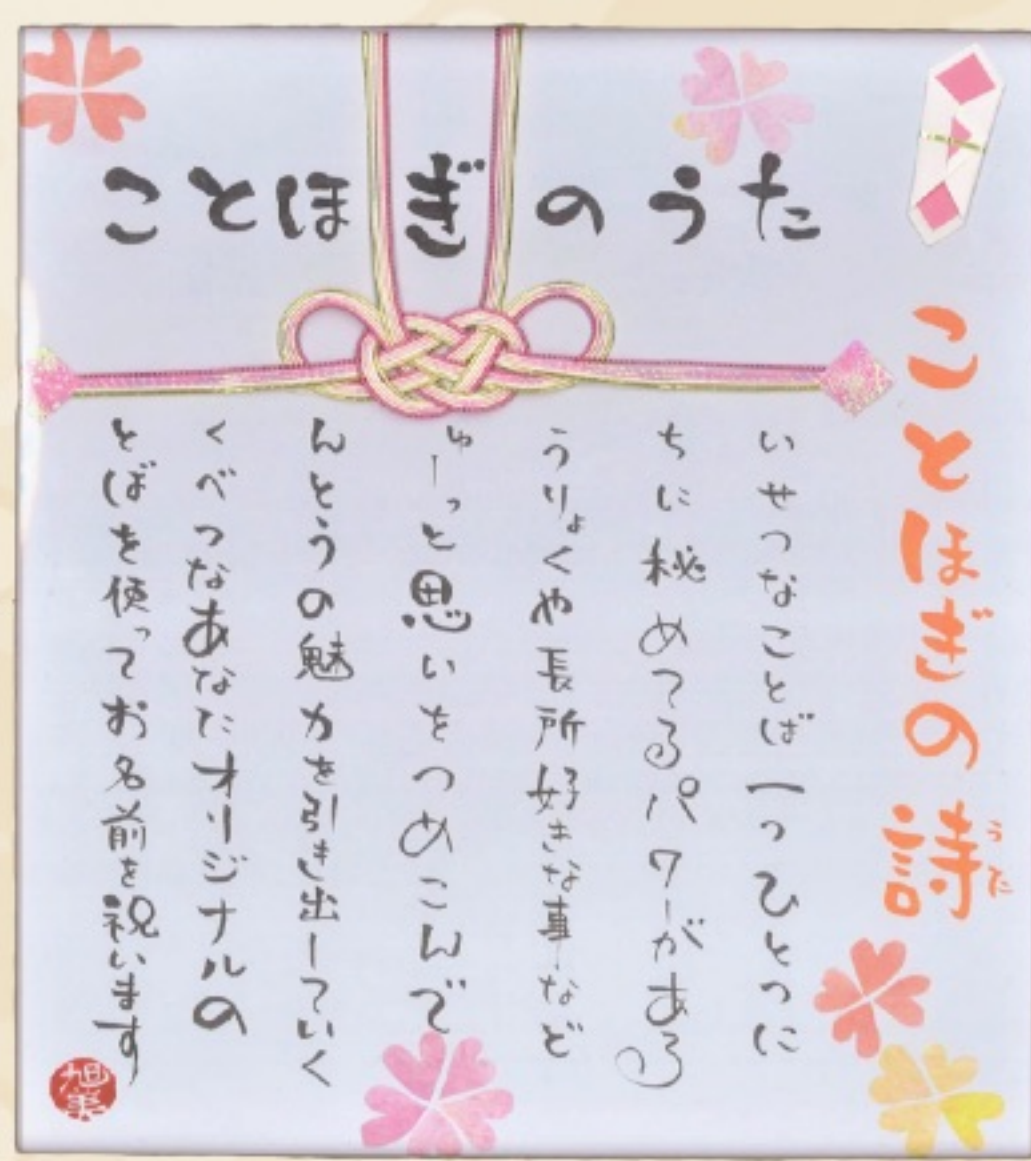 ことほぎのうた
ことほぎの詩
うた
いせつなことば一つひとつに
ちに秘めてるパワーがある
うりょくや長所好きな事など
ゅーっと思いをつめこんで
んとうの魅力を引き出していく
くべつなあなたオリジナルの
とばを使ってお名前を祝います
旭美